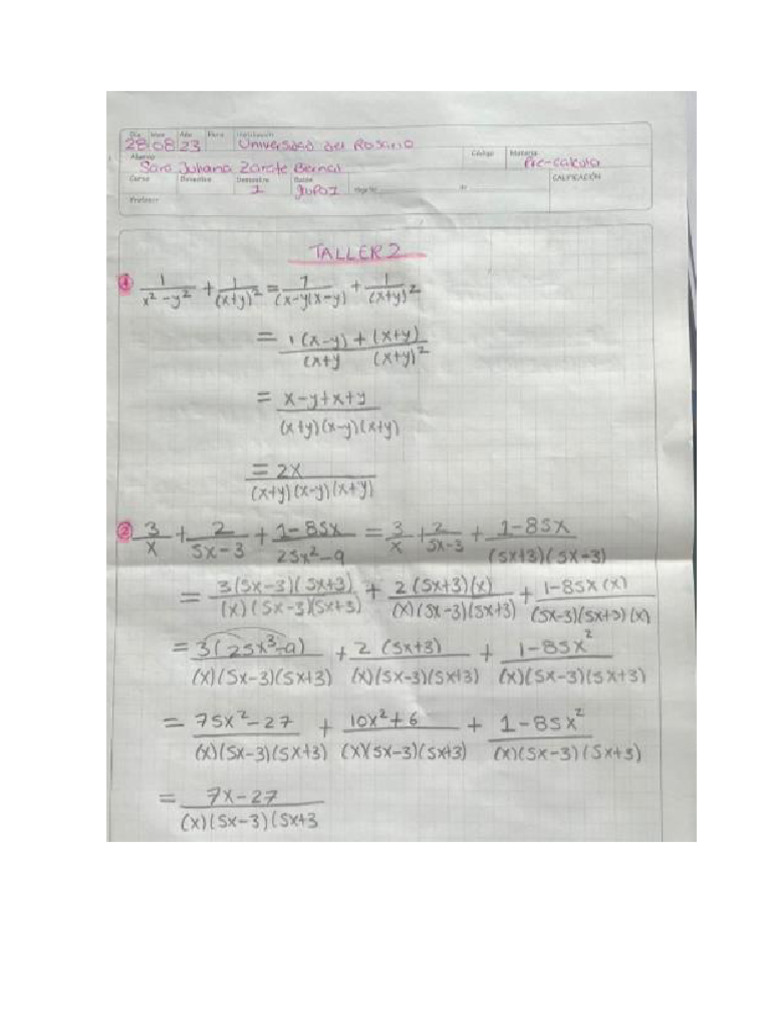 Día Mes Año Hora Institución
28 08 23 Universidad del Rosario
Alumno Código Materia
Sara Juliana Zarate Bernal Pre-calculo
Curso Semestre CALIFICACIÓN
1 grupo 1
Profesor
TALLER 2
1 1/(x²-y²) + 1/(x+y)² = 1/((x-y)(x-y)) + 1/(x+y)²
= (1(x-y) + (x+y))/((x+y (x+y)²)
= (x-y+x+y)/((x+y)(x-y)(x+y))
= 2x/((x+y)(x-y)(x+y))
2 3/x + 2/(5x-3) + (1-85x)/(25x²-9) = 3/x + 2/(5x-3) + (1-85x)/((5x+3)(5x-3))
= 3(5x-3)(5x+3)/((x)(5x-3)(5x+3)) + 2(5x+3)(x)/((x)(5x-3)(5x+3)) + (1-85x(x))/((5x-3)(5x+3)(x))
= 3(25x³-9)/((x)(5x-3)(5x+3)) + 2(5x+3)/((x)(5x-3)(5x+3)) + (1-85x²)/((x)(5x-3)(5x+3))
= (75x²-27)/((x)(5x-3)(5x+3)) + (10x²+6)/((x)(5x-3)(5x+3)) + (1-85x²)/((x)(5x-3)(5x+3))
= (7x-27)/((x)(5x-3)(5x+3